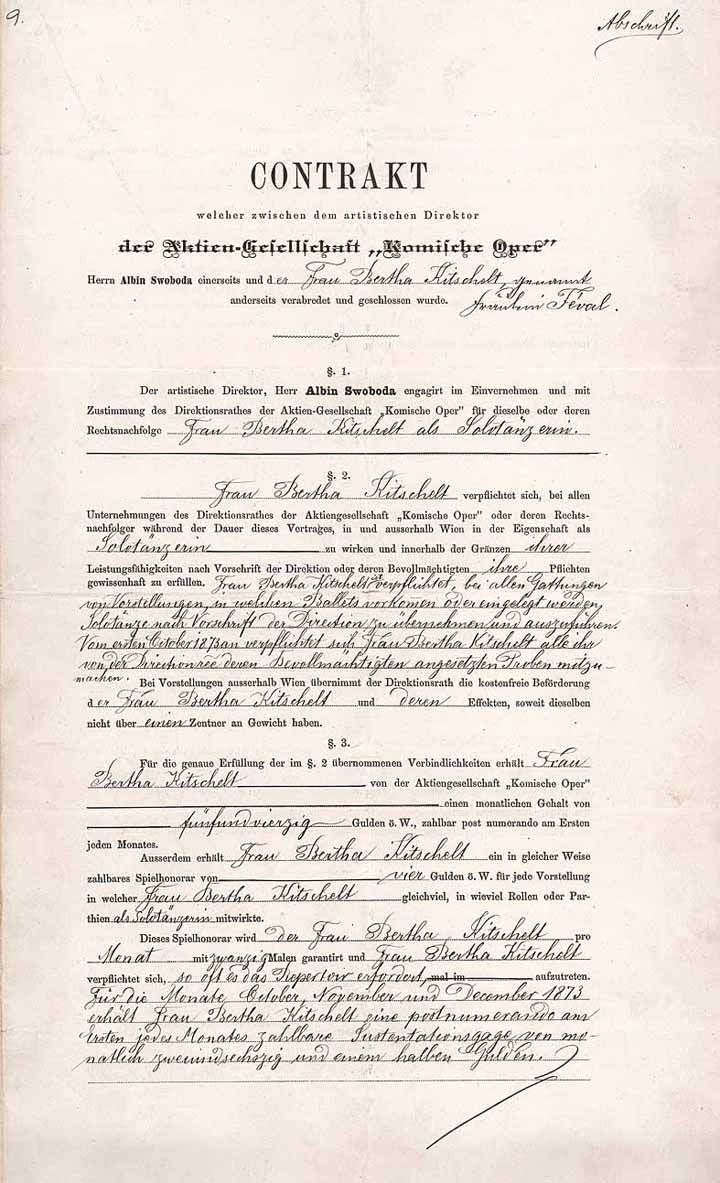 9.
Abschrift.
CONTRAKT
welcher zwischen dem artistischen Direktor
der Aktien-Gesellschaft „Komische Oper"
Herrn Albin Swoboda einerseits und der Frau Bertha Kitschelt, genannt
anderseits verabredet und geschlossen wurde. Fräulein Féval.
§. 1.
Der artistische Direktor, Herr Albin Swoboda engagirt im Einvernehmen und mit
Zustimmung des Direktionsrathes der Aktien-Gesellschaft „Komische Oper" für dieselbe oder deren
Rechtsnachfolge Frau Bertha Kitschelt als Solotänzerin.
§. 2.
Frau Bertha Kitschelt verpflichtet sich, bei allen
Unternehmungen des Direktionsrathes der Aktiengesellschaft „Komische Oper" oder deren Rechts-
nachfolger während der Dauer dieses Vertrages, in und ausserhalb Wien in der Eigenschaft als
Solotänzerin zu wirken und innerhalb der Gränzen ihrer
Leistungsfähigkeiten nach Vorschrift der Direktion oder deren Bevollmächtigten ihre Pflichten
gewissenhaft zu erfüllen. Frau Bertha Kitschelt ist verpflichtet, bei allen Gattungen
von Vorstellungen, in welchen Ballets vorkomen oder eingelegt werden,
Solotänze nach Vorschrift der Direction zu übernehmen und auszuführen.
Vom ersten October 1873 an verpflichtet sich Frau Bertha Kitschelt alle ihr
von der Direction deren Bevollmächtigten angesetzten Proben mitzu-
machen.
Bei Vorstellungen ausserhalb Wien übernimmt der Direktionsrath die kostenfreie Beförderung
der Frau Bertha Kitschelt und deren Effekten, soweit dieselben
nicht über einen Zentner an Gewicht haben.
§. 3.
Für die genaue Erfüllung der im §. 2 übernommenen Verbindlichkeiten erhält Frau
Bertha Kitschelt von der Aktiengesellschaft „Komische Oper"
einen monatlichen Gehalt von
fünfundvierzig Gulden ö. W., zahlbar post numerando am Ersten
jeden Monates.
Ausserdem erhält Frau Bertha Kitschelt ein in gleicher Weise
zahlbares Spielhonorar von vier Gulden ö. W. für jede Vorstellung
in welcher Frau Bertha Kitschelt gleichviel, in wieviel Rollen oder Par-
thien als Solotänzerin mitwirkte.
Dieses Spielhonorar wird der Frau Bertha Kitschelt pro
Monat mit zwanzig Malen garantirt und Frau Bertha Kitschelt
verpflichtet sich, so oft es das Repertoir erfordert, mal im aufzutreten.
Für die Monate October, November und December 1873
erhält Frau Bertha Kitschelt eine postnumerando am
Ersten jedes Monates zahlbare Sustentationsgage von mo-
natlich zweiundsechszig und einem halben Gulden.